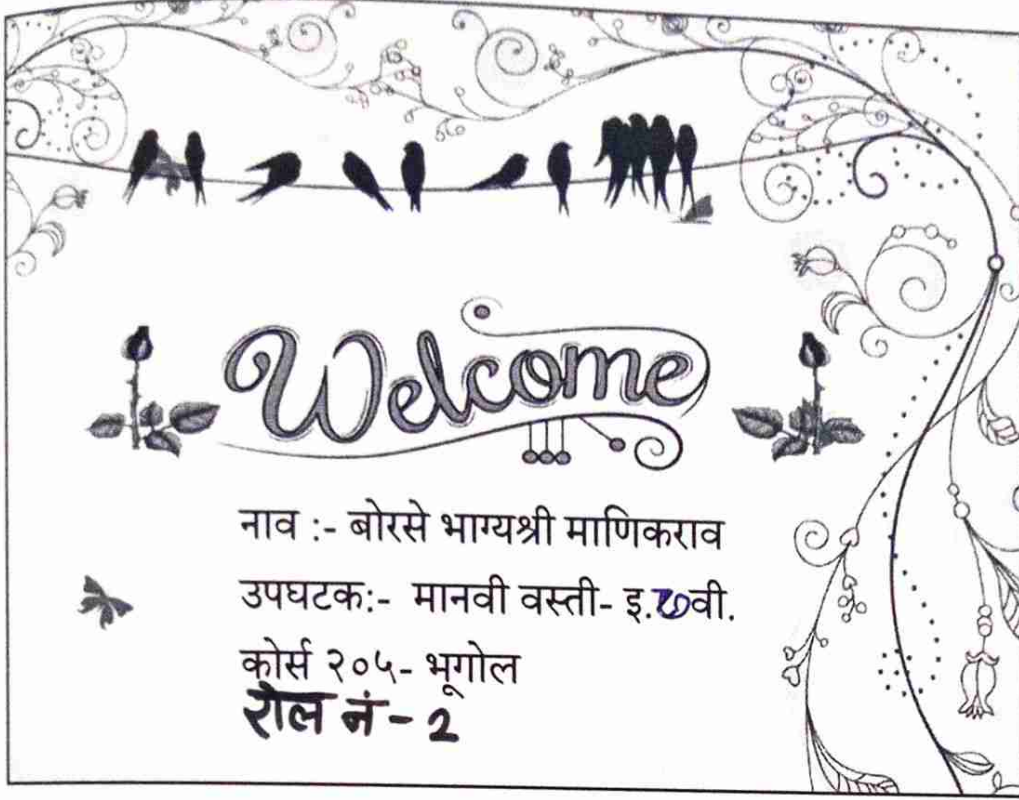 Welcome
नाव :- बोरसे भाग्यश्री माणिकराव
उपघटक:- मानवी वस्ती- इ.७वी.
कोर्स २०५- भूगोल
रोल नं - 2